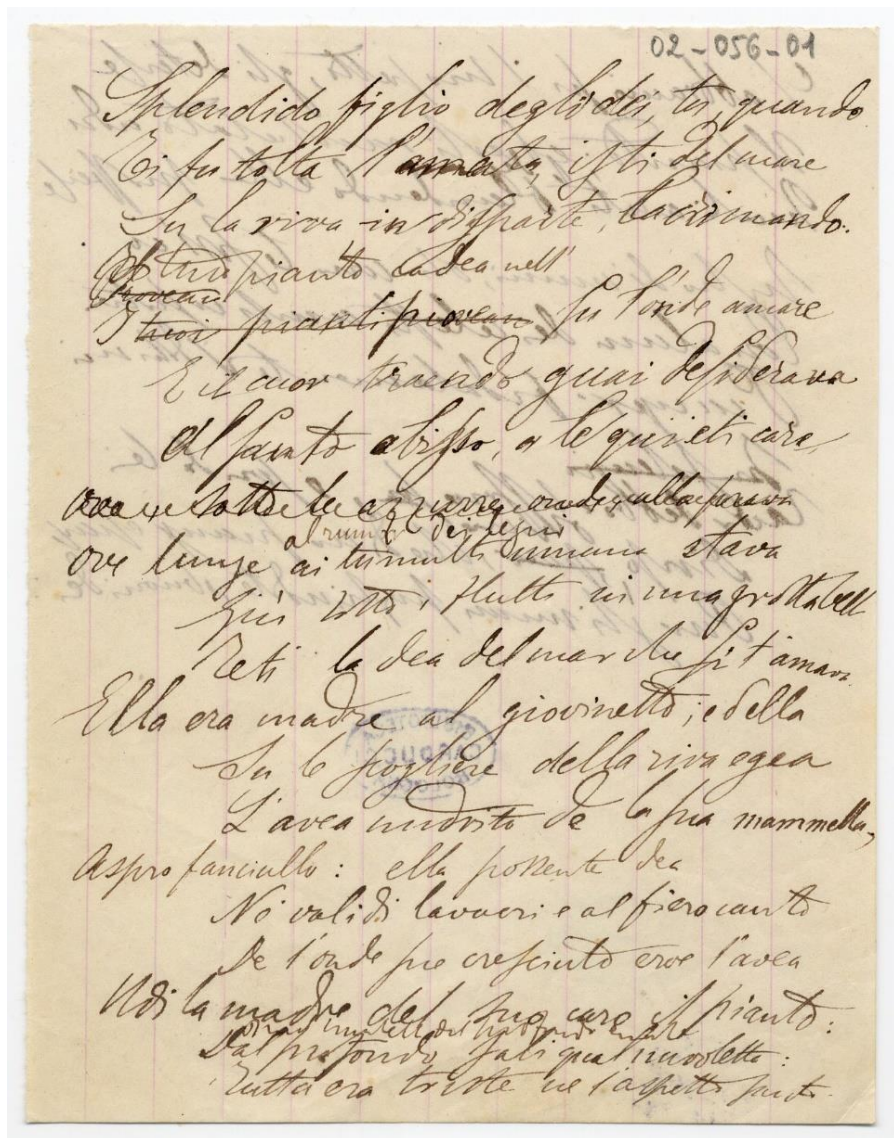 02-056-01
Splendido figlio degli dei, tu, quando
Ti fu tolta l'amata, isti del mare
Su la riva in disparte, lacrimando.
Il tuo pianto cadea nell'
Piovean
I tuoi pianti piovean su l'onde amare
E il cuor traendo guai desiderava
Al santo abisso, a le quieti care
sotto le azzurre onde
al rumor dei legni
ove lunge ai tumulti umana stava
Giù sotto i flutti in una grotta bella
Teti la dea del mar che sì t'amava
Ella era madre al giovinetto; ed ella
Su le scogliere della riva egea
L'avea nudrito de la sua mammella,
Aspro fanciullo: ella possente dea
Ne' validi lavacri e al fiero canto
De l'onde sue cresciuto eroe l'avea
Udì la madre del suo caro il pianto:
Dal profondo salì qual nuvoletta:
Tutta era triste ne l'aspetto santo.